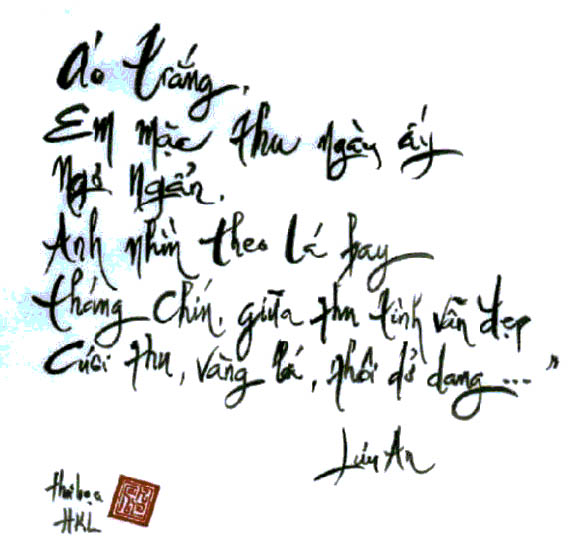 Áo trắng,
Em mặc thu ngày ấy
Ngơ ngẩn,
Anh nhìn theo lá bay
Tháng Chín, giữa thu tình vẫn đẹp
Cuối thu, vàng lá, thôi dở dang ... "
Lưu An
thi họa
HKL